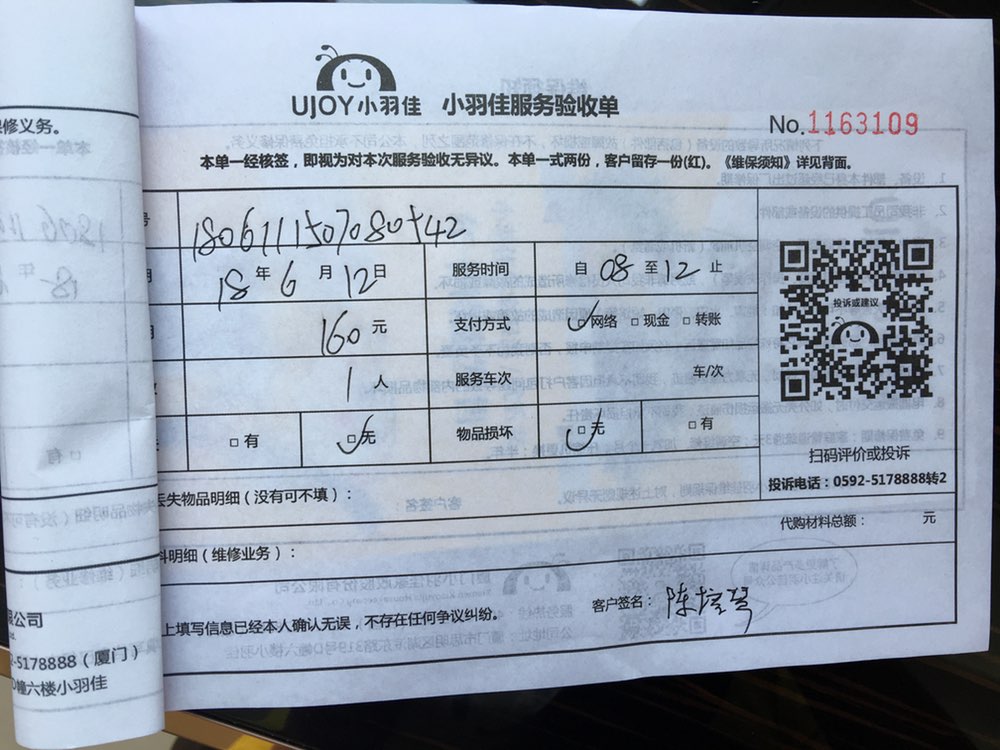 UJOY小羽佳 小羽佳服务验收单
No.1163109
本单一经核签，即视为对本次服务验收无异议。本单一式两份，客户留存一份(红)。《维保须知》详见背面。
号 1806111507080542
18年6月12日 服务时间 自08至12止
160元 支付方式 网络 现金 转账
1人 服务车次 车/次
有 无 物品损坏 无 有
投诉或建议
扫码评价或投诉
投诉电话：0592-5178888转2
丢失物品明细（没有可不填）：
代购材料总额： 元
料明细（维修业务）：
客户签名：
上填写信息已经本人确认无误，不存在任何争议纠纷。
修义务。
限公司
2-5178888（厦门）
D幢六楼小羽佳